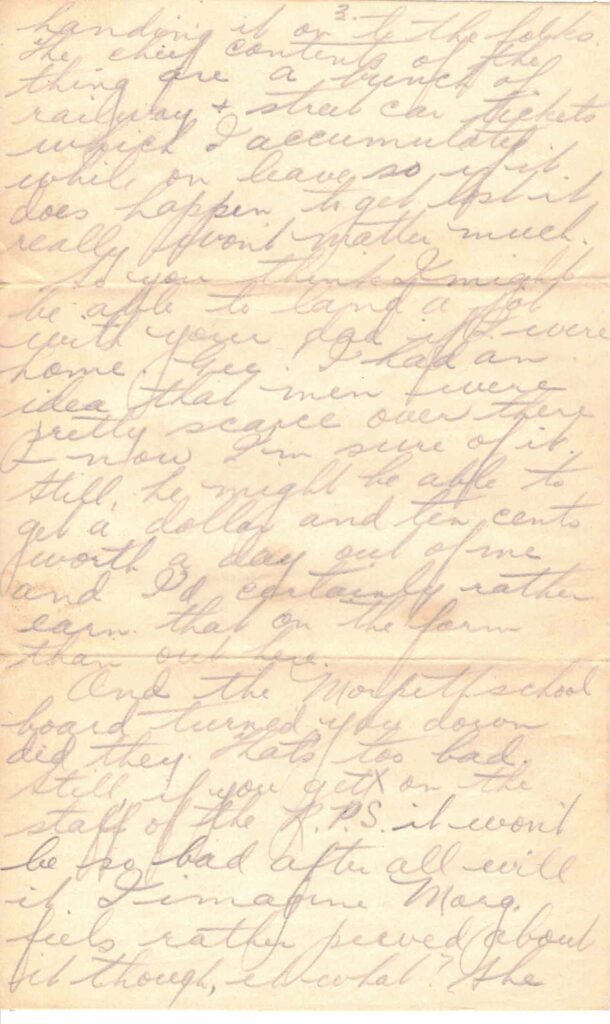 3.
handing it on to the folks.
The chief contents of the
thing are a bunch of
railway + street car tickets
which I accumulated
while on leave so if it
does happen to get lost it
really won't matter much.
So you think I might
be able to land a job
with your dad if I were
home. Gee. I had an
idea that men were
pretty scarce over there
I now I'm sure of it.
Still, he might be able to
get a dollar and ten cents
worth a day out of me
and I'd certainly rather
earn that on the farm
than out here.
And the Morpeth school
board turned you down
did they. That's too bad.
Still if you get on the
staff of the R.P.S. it won't
be so bad after all will
it. I imagine Marg.
feels rather peeved about
it though, eh what? She